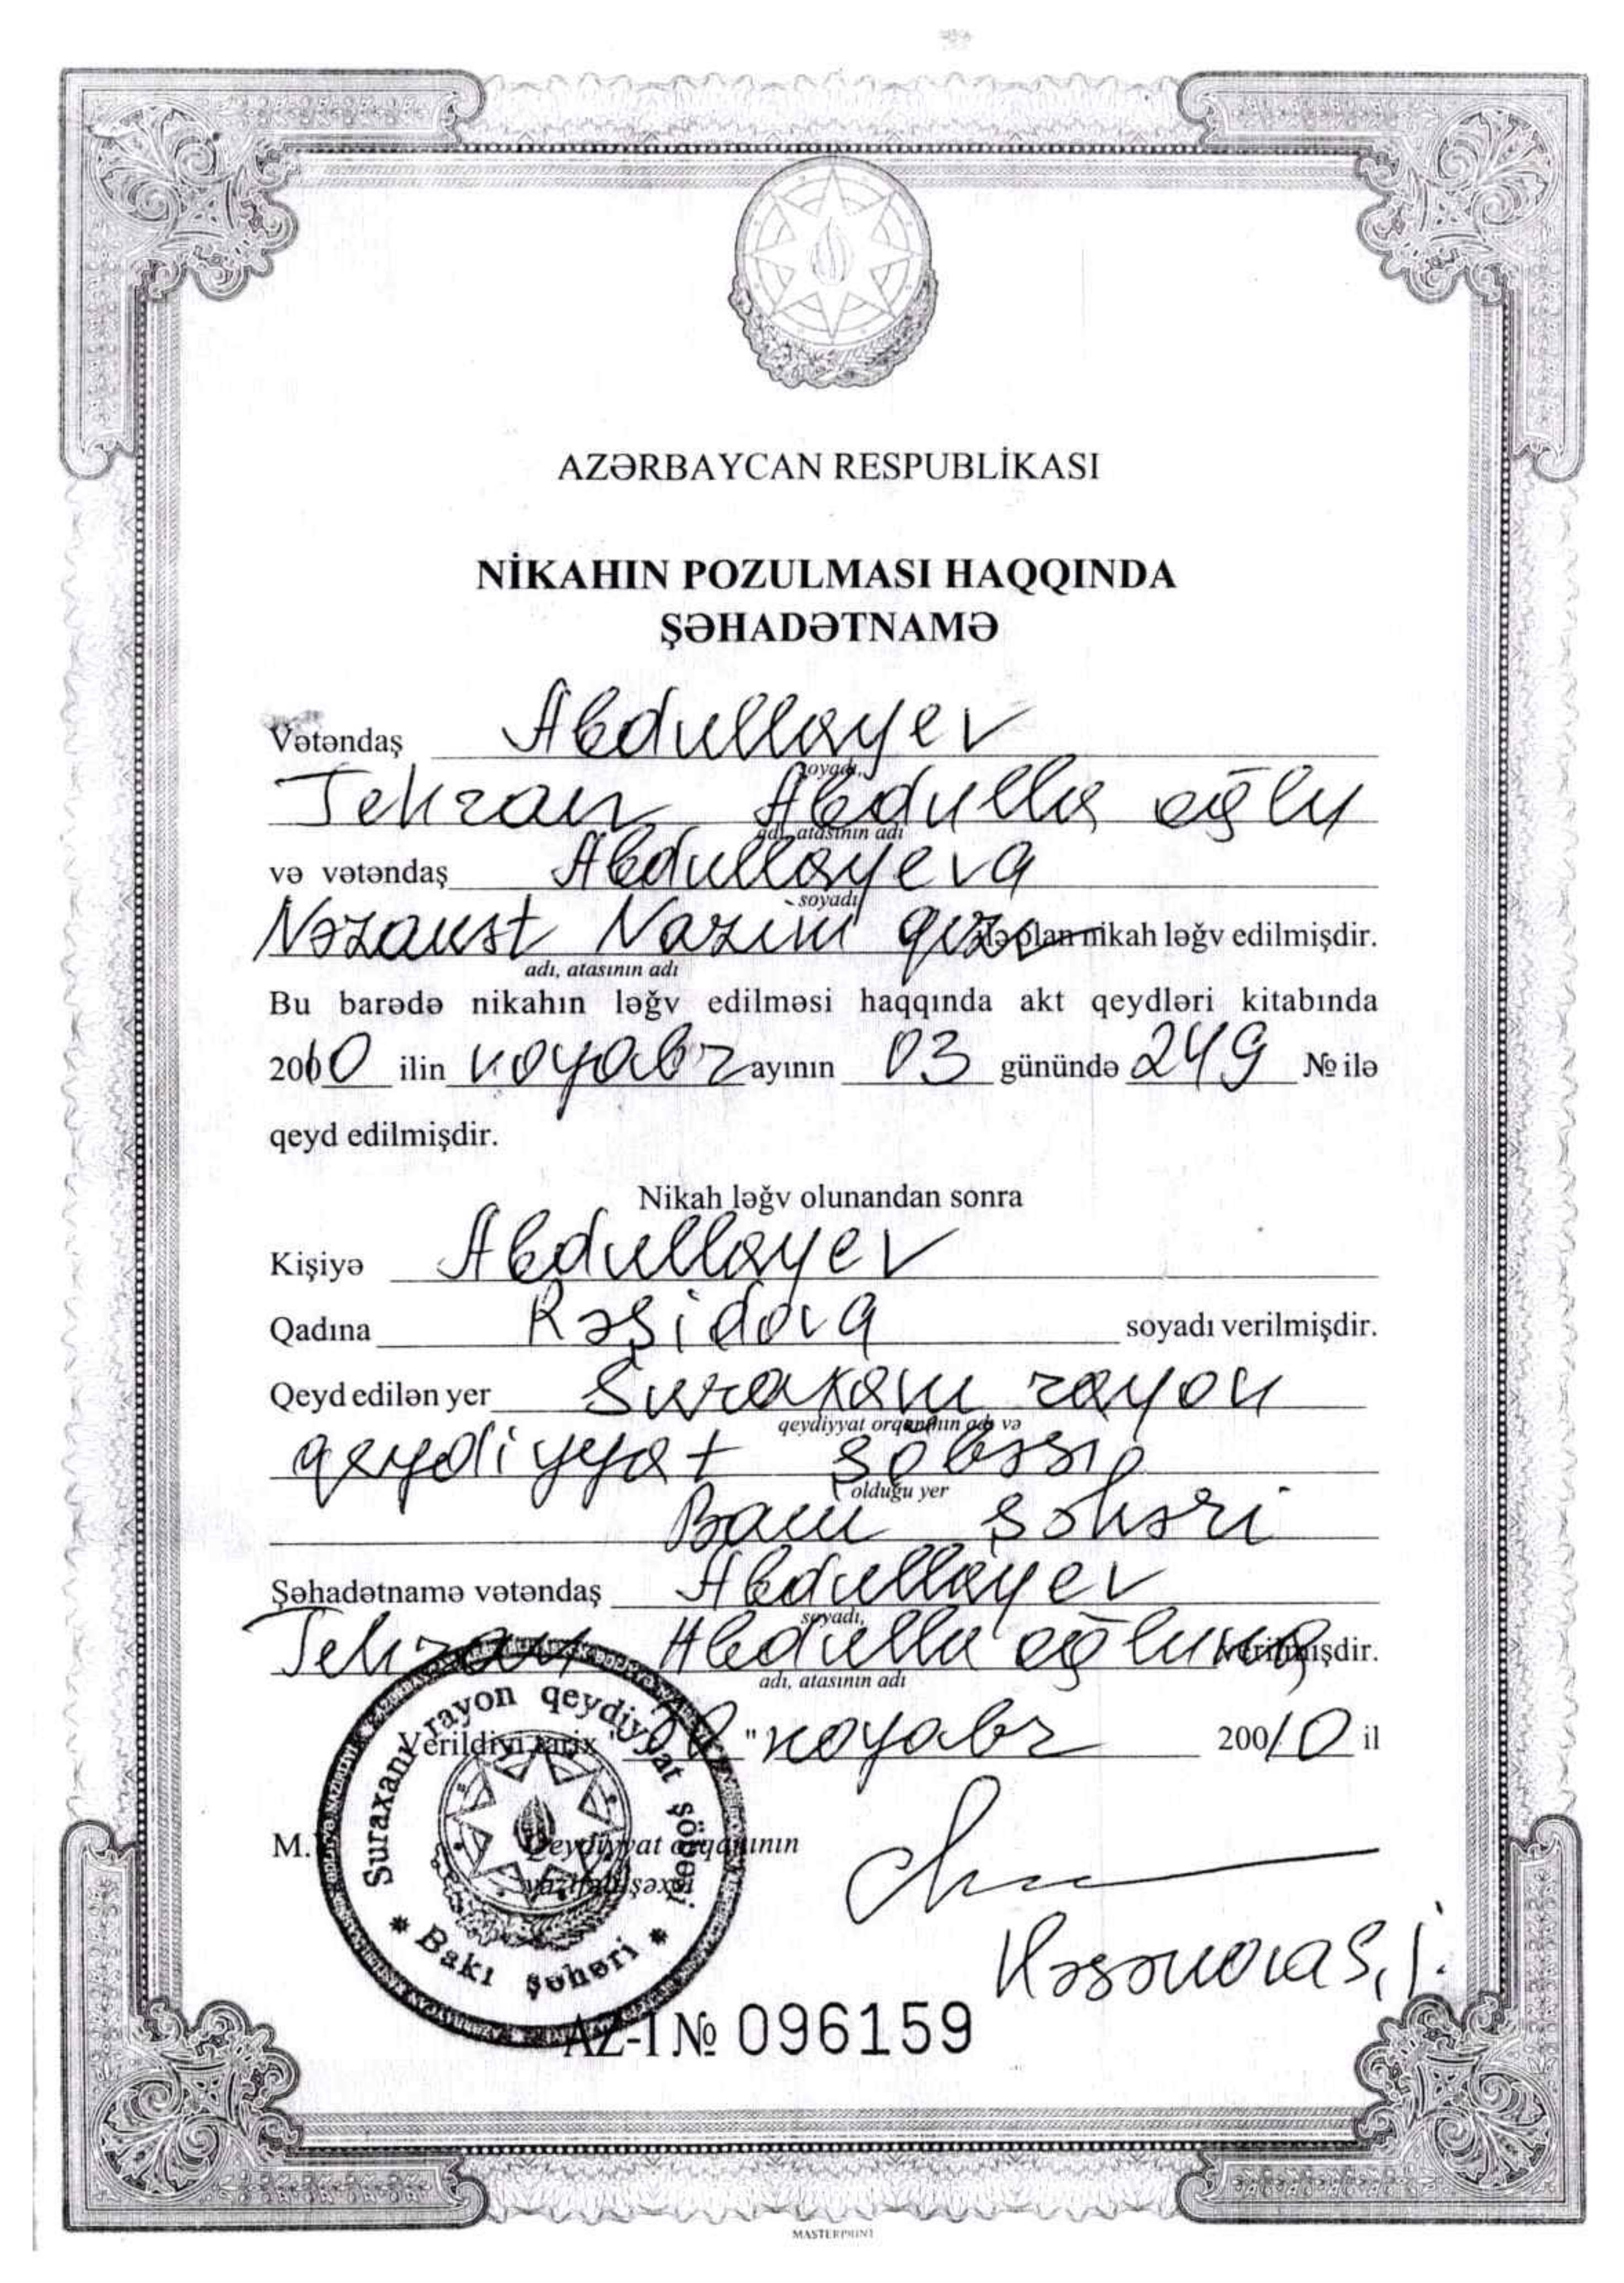 AZƏRBAYCAN RESPUBLİKASI
NİKAHIN POZULMASI HAQQINDA
ŞƏHADƏTNAMƏ
Vətəndaş Abdullayev
soyadı,
Tehran Abdulla oğlu
adı, atasının adı
və vətəndaş Abdullayeva
soyadı
Nəzakət Nazim qızı ilə olan nikah ləğv edilmişdir.
adı, atasının adı
Bu barədə nikahın ləğv edilməsi haqqında akt qeydləri kitabında
2010 ilin noyabr ayının 03 günündə 249 № ilə
qeyd edilmişdir.
Nikah ləğv olunandan sonra
Kişiyə Abdullayev
Qadına Rəşidova soyadı verilmişdir.
Qeyd edilən yer Suraxanı rayon
qeydiyyat orqanının adı və
qeydiyyat şöbəsi
olduğu yer
Bakı şəhəri
Şəhadətnamə vətəndaş Abdullayev
soyadı,
Tehran Abdulla oğluna verilmişdir.
adı, atasının adı
Verildiyi tarix " " noyabr 20010 il
M.
Qeydiyyat orqanının
vəzifəli şəxsi
Həsənova S.İ.
Suraxanı rayon qeydiyyat şöbəsi
* Bakı şəhəri *
AZ-I № 096159
MASTERPRINT